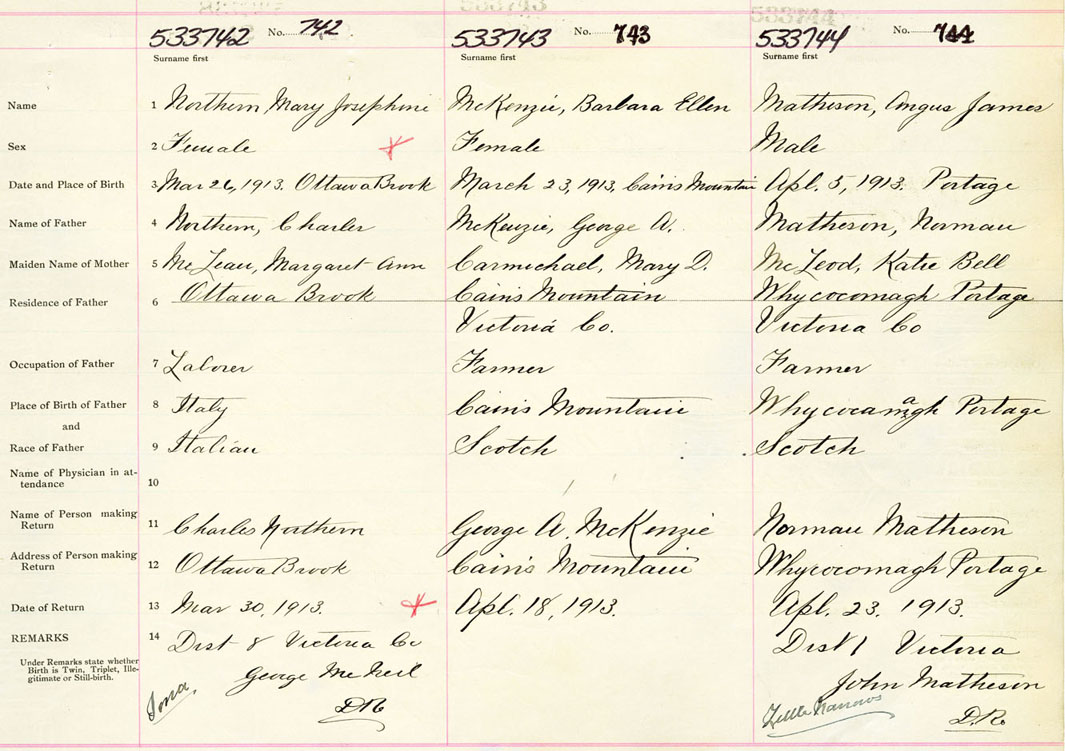 533742 No. 742 533743 No. 743 533744 No. 744
Surname first Surname first Surname first
Name 1 Northern, Mary Josephine McKenzie, Barbara Ellen Matheson, Angus James
Sex 2 Female Female Male
Date and Place of Birth 3 Mar 26, 1913. Ottawa Brook March 23, 1913, Cains Mountain Apl. 5, 1913. Portage
Name of Father 4 Northern, Charles McKenzie, George A. Matheson, Norman
Maiden Name of Mother 5 McLean, Margaret Ann Carmichael, Mary D. McLeod, Katie Bell
Residence of Father 6 Ottawa Brook Cains Mountain Whycocomagh Portage
Victoria Co. Victoria Co
Occupation of Father 7 Laborer Farmer Farmer
Place of Birth of Father 8 Italy Cains Mountain Whycocamagh Portage
and
Race of Father 9 Italian Scotch Scotch
Name of Physician in at-
tendance 10
Name of Person making
Return 11 Charles Northern George A. McKenzie Norman Matheson
Address of Person making
Return 12 Ottawa Brook Cains Mountain Whycocomagh Portage
Date of Return 13 Mar 30, 1913. Apl. 18, 1913. Apl. 23. 1913.
REMARKS 14 Dist 8 Victoria Co Dist 1 Victoria
Under Remarks state whether
Birth is Twin, Triplet, Ille-
gitimate or Still-birth.
George McNeil John Matheson
Iona, DR Little Narrows D.R.